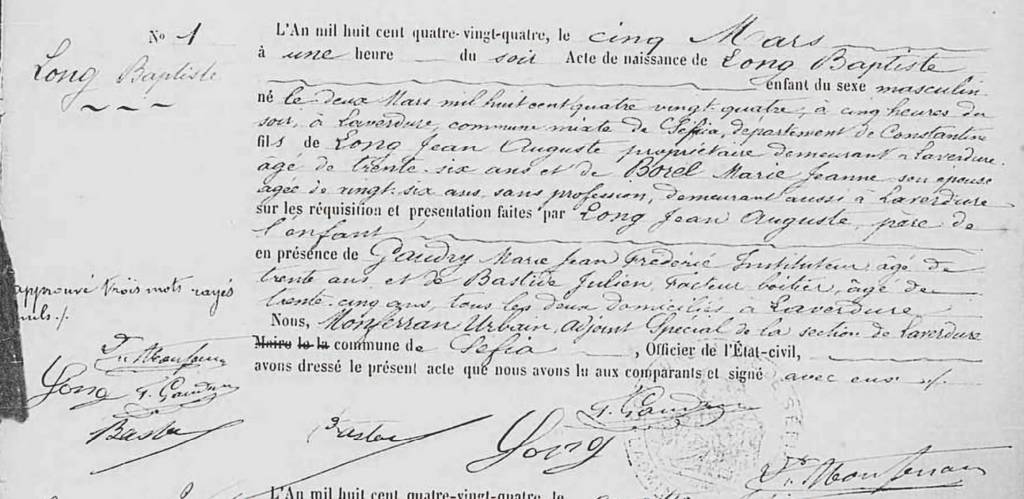 N° 1
Long Baptiste
L'An mil huit cent quatre-vingt-quatre, le cinq Mars
à une heure du soir Acte de naissance de Long Baptiste
enfant du sexe masculin
né le deux Mars mil huit cent quatre vingt quatre, à cinq heures du
soir, à Laverdure, commune mixte de Séfia, département de Constantine
fils de Long Jean Auguste propriétaire demeurant à Laverdure.
âgé de trente-six ans et de Borel Marie Jeanne son épouse
agée de vingt-six ans, sans profession, demeurant aussi à Laverdure
sur les réquisition et presentation faites par Long Jean Auguste, père de
l'enfant
en présence de Gaudry Marie Jean Frédéric Instituteur âgé de
trente ans et de Bastide Julien, facteur boitier, âgé de
trente-cinq ans, tous les deux domiciliés à Laverdure
Nous, Monferran Urbain, adjoint Spécial de la section de Laverdure
Maire de la commune de Séfia, Officier de l'État-civil,
avons dressé le présent acte que nous avons lu aux comparants et signé avec eux ./.
approuvé trois mots rayés
nuls ./.
Long
F. Gaudry
Long
F. Gaudry
L'An mil huit cent quatre-vingt-quatre, le